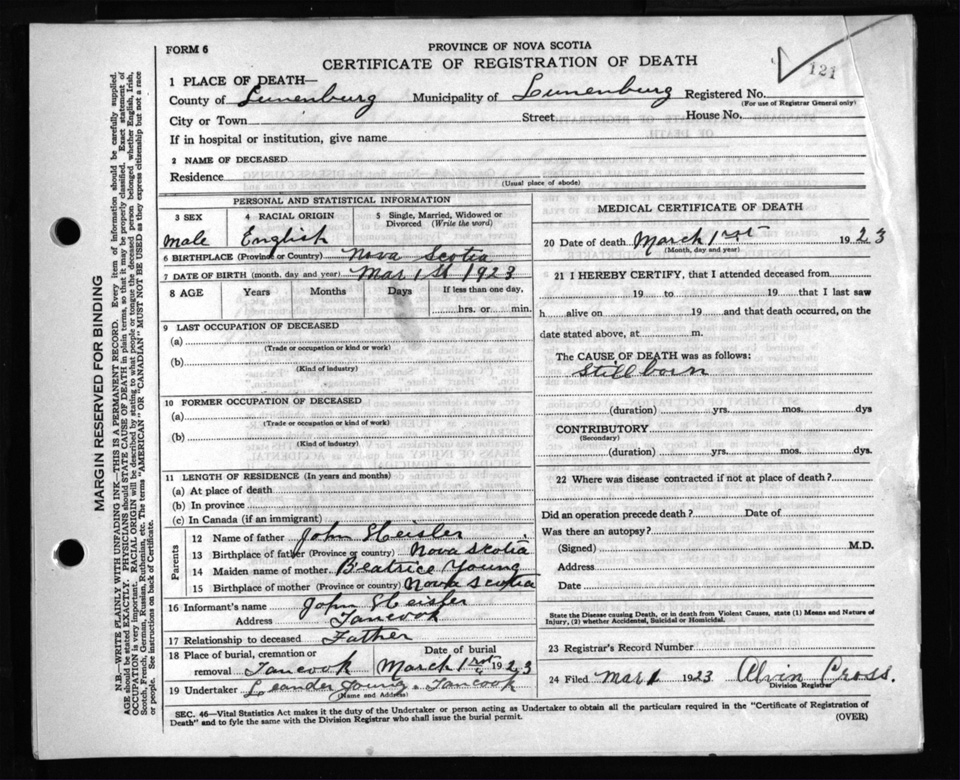 FORM 6
PROVINCE OF NOVA SCOTIA
CERTIFICATE OF REGISTRATION OF DEATH
121
1 PLACE OF DEATH—
County of Lunenburg Municipality of Lunenburg Registered No.
(For use of Registrar General only)
City or Town Street House No.
If in hospital or institution, give name
2 NAME OF DECEASED
Residence
(Usual place of abode)
PERSONAL AND STATISTICAL INFORMATION
3 SEX 4 RACIAL ORIGIN 5 Single, Married, Widowed or Divorced (Write the word)
Male English
6 BIRTHPLACE (Province or Country) Nova Scotia
7 DATE OF BIRTH (month, day and year) Mar 1st 1923
8 AGE Years Months Days If less than one day,
hrs. or min.
9 LAST OCCUPATION OF DECEASED
(a)
(Trade or occupation or kind of work)
(b)
(Kind of industry)
10 FORMER OCCUPATION OF DECEASED
(a)
(Trade or occupation or kind of work)
(b)
(Kind of industry)
11 LENGTH OF RESIDENCE (In years and months)
(a) At place of death
(b) In province
(c) In Canada (if an immigrant)
Parents
12 Name of father John Heisler
13 Birthplace of father (Province or country) Nova Scotia
14 Maiden name of mother Beatrice Young
15 Birthplace of mother (Province or country) Nova Scotia
16 Informant's name John Heisler
Address Tancook
17 Relationship to deceased Father
18 Place of burial, cremation or removal Tancook Date of burial March 1rst 1923
19 Undertaker Leander Young. Tancook
(Name and Address)
MEDICAL CERTIFICATE OF DEATH
20 Date of death March 1rst 1923
(Month, day and year)
21 I HEREBY CERTIFY, that I attended deceased from
19 to 19 that I last saw
h alive on 19 and that death occurred, on the
date stated above, at m.
The CAUSE OF DEATH was as follows:
Still born
(duration) yrs. mos. dys
CONTRIBUTORY
(Secondary)
(duration) yrs. mos. dys.
22 Where was disease contracted if not at place of death?
Did an operation precede death? Date of
Was there an autopsy?
(Signed) M.D.
Address
Date
State the Disease causing Death, or in death from Violent Causes, state (1) Means and Nature of
Injury, (2) whether Accidental, Suicidal or Homicidal.
23 Registrar's Record Number
24 Filed Mar 1 1923 Alvin Cross.
Division Registrar
SEC. 46—Vital Statistics Act makes it the duty of the Undertaker or person acting as Undertaker to obtain all the particulars required in the "Certificate of Registration of
Death" and to fyle the same with the Division Registrar who shall issue the burial permit.
(OVER)
MARGIN RESERVED FOR BINDING
N.B.—WRITE PLAINLY WITH UNFADING INK—THIS IS A PERMANENT RECORD. Every item of Information should be carefully supplied.
AGE should be stated EXACTLY. PHYSICIANS should STATE CAUSE OF DEATH in plain terms, so that it may be properly classified. Exact statement of
OCCUPATION is very important. RACIAL ORIGIN will be described by stating to what people or tongue the deceased person belonged whether English, Irish,
Scotch, French, German, Russian, Ruthenian, etc. The terms "AMERICAN" OR "CANADIAN" MUST NOT BE USED as they express citizenship but not a race
or people. See instructions on back of Certificate.